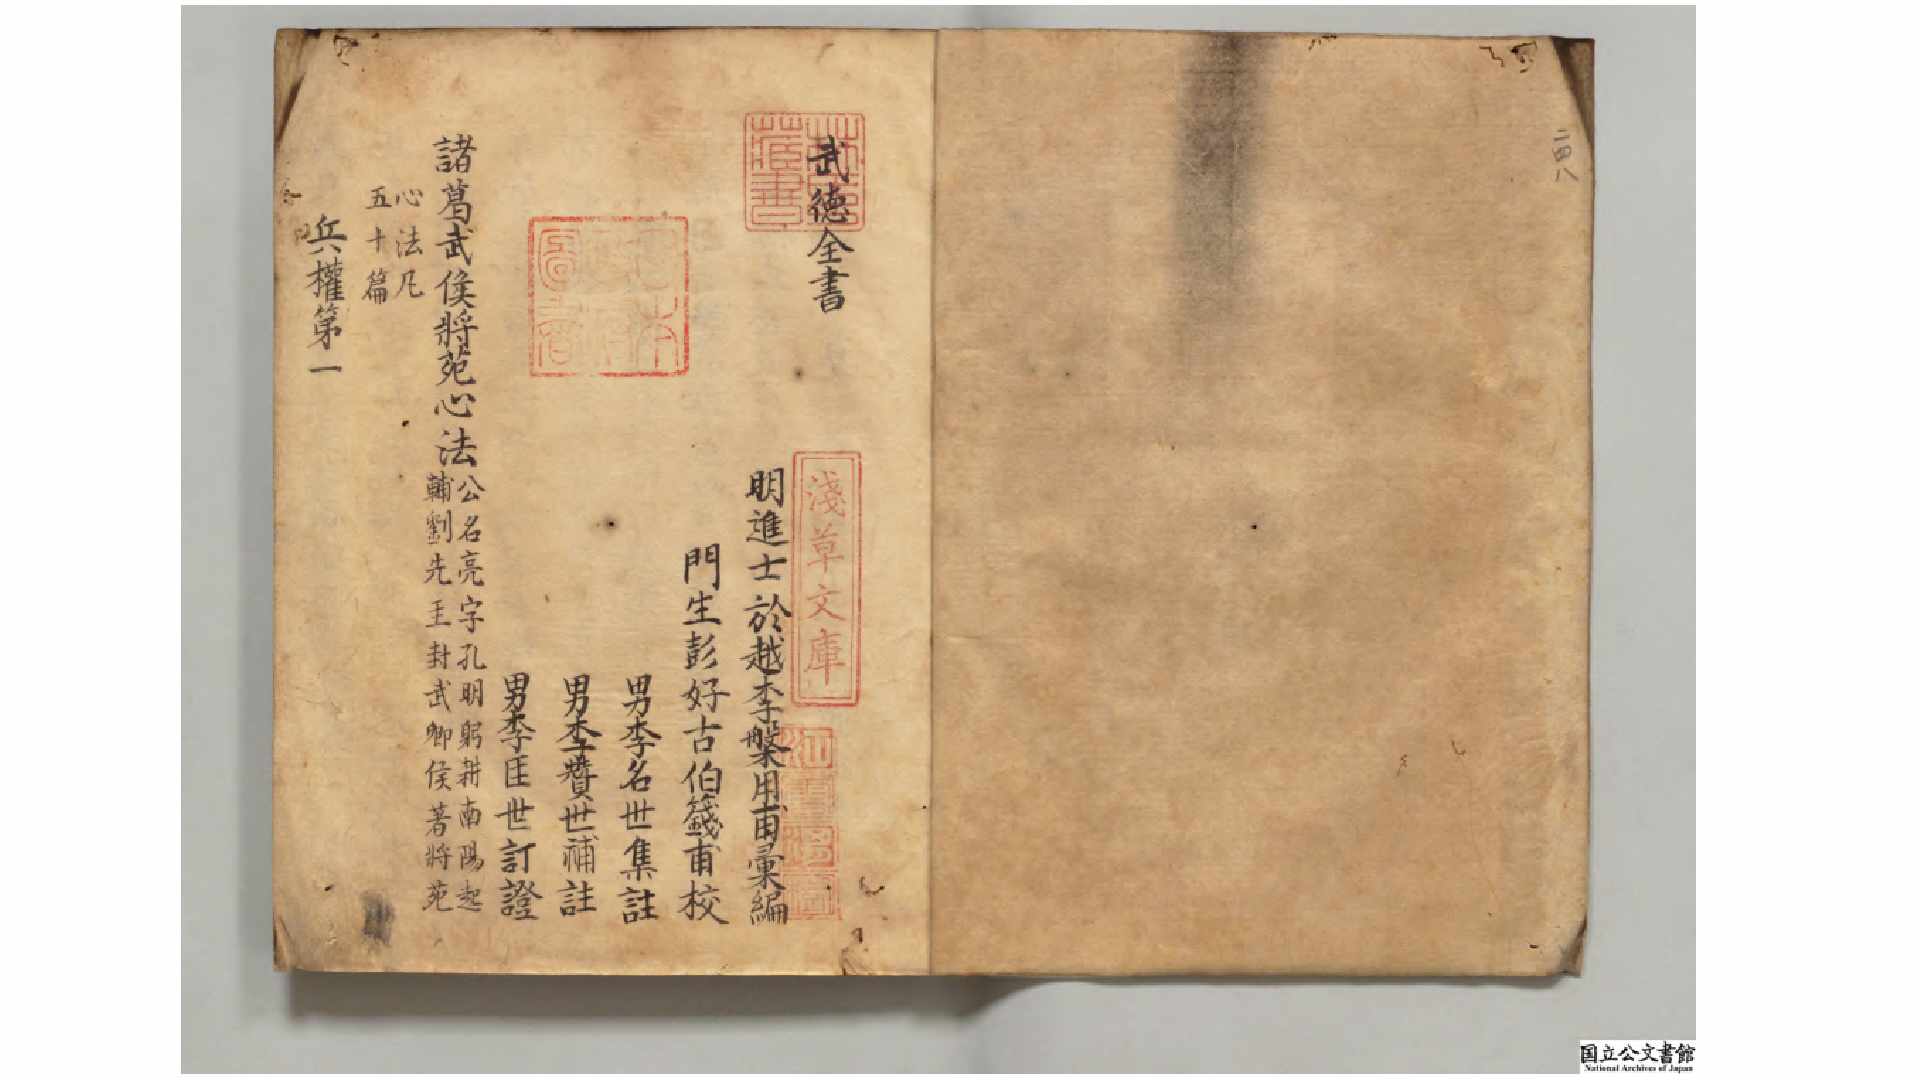 二四八
武德全書
淺草文庫
明進士於越李槃用甫彙編
門生彭好古伯籛甫校
男李名世集註
男李贊世補註
男李匡世訂證
諸葛武侯將苑心法
公名亮字孔明躬耕南陽起
輔劉先主封武鄉侯著將苑
心法凡
五十篇
兵權第一
国立公文書館
National Archives of Japan